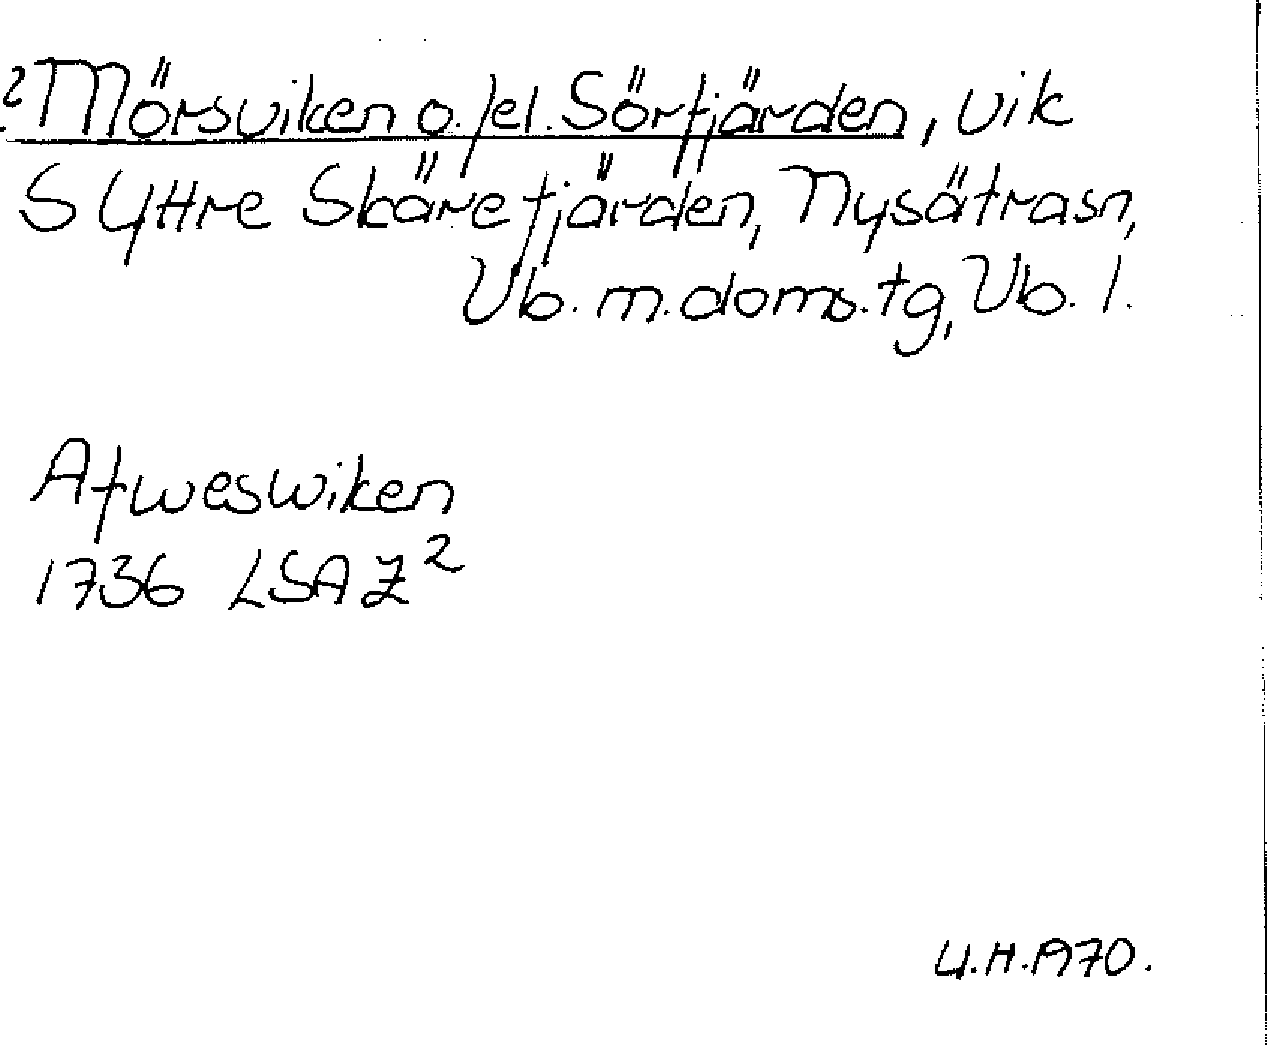 ?Mörsviken o./el. Sörfjärden, vik
S Yttre Skärefjärden, Nysätrasn,
Vb. m. doms. tg, Vb. l.
Afweswiken
1736 LSA Z²
U.H. 1970.